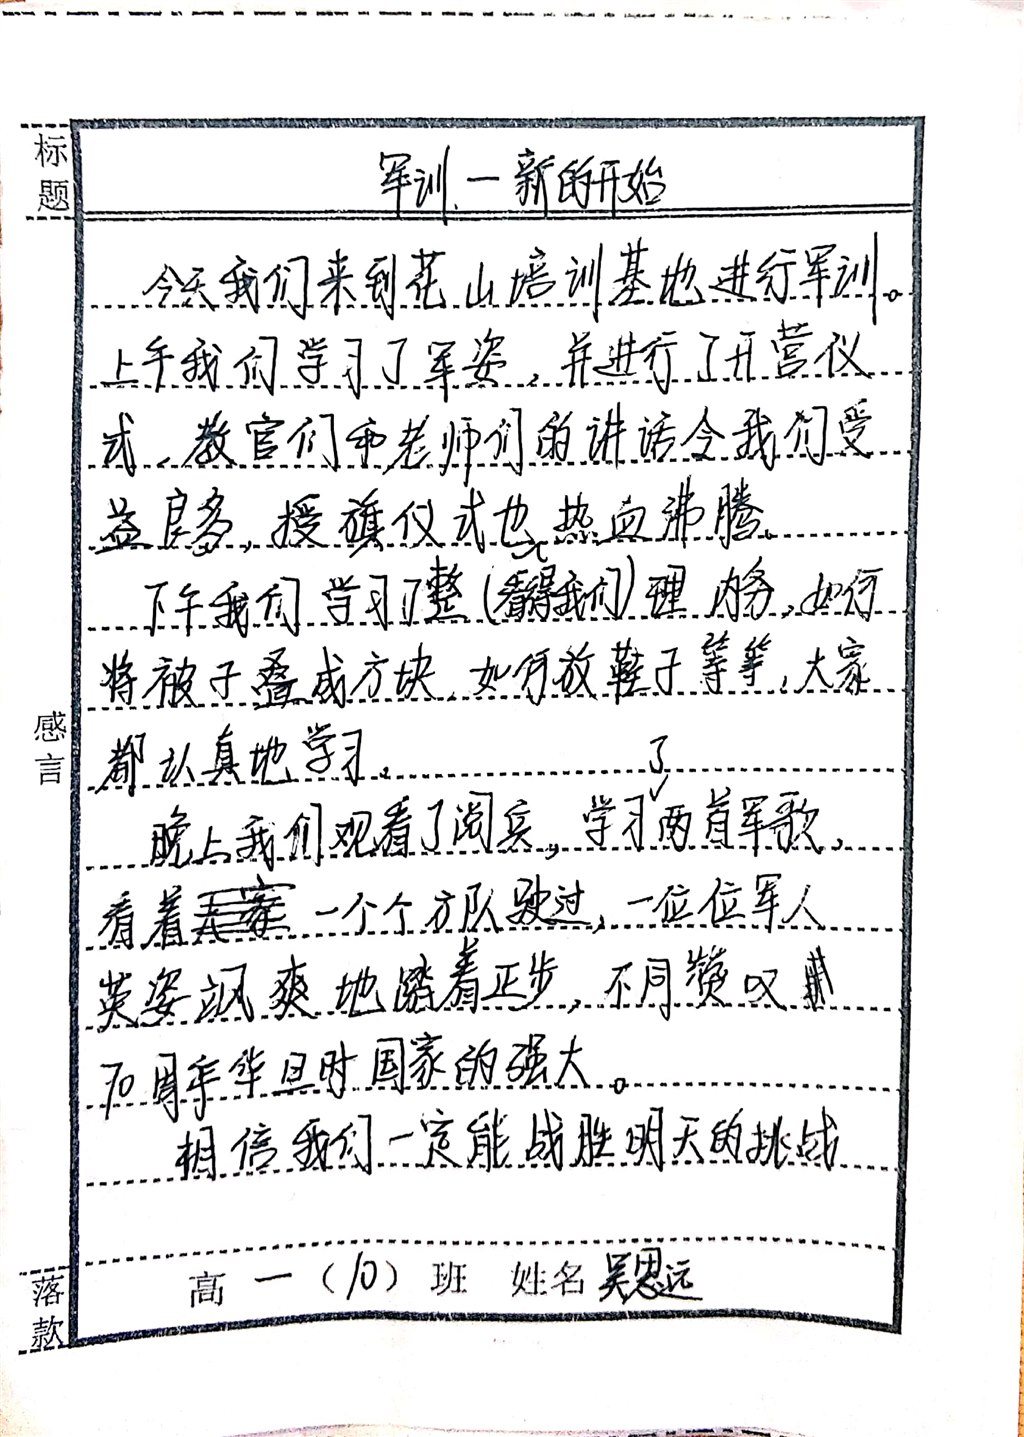 标题
军训、一新的开始
今天我们来到花山培训基地进行军训。
上午我们学习了军姿，并进行了开营仪
式，教官们和老师们的讲话令我们受
益良多，授旗仪式也热血沸腾。
下午我们学习了整(看得我们)理内务，如何
将被子叠成方块，如何放鞋子等等，大家
都认真地学习。
感言
晚上我们观看了阅兵，学习了两首军歌，
看着一个个方队驶过，一位位军人
英姿飒爽地踏着正步，不同赞叹
70周年华旦时国家的强大。
相信我们一定能战胜明天的挑战
落款
高一(10)班 姓名吴思远